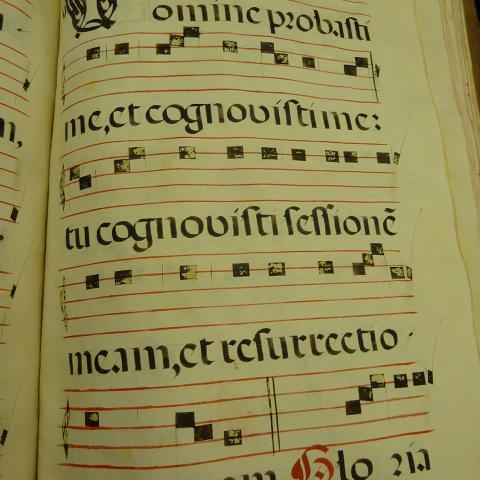 Domine probasti
me, et cognovisti me:
tu cognovisti sessionē
meam, et resurrectio
Glo ria